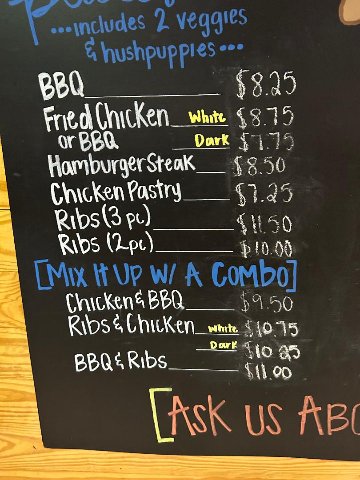 ...includes 2 veggies
& hushpuppies...
BBQ $8.25
Fried Chicken White $8.75
or BBQ Dark $7.75
Hamburger Steak $8.50
Chicken Pastry $7.25
Ribs (3 pc) $11.50
Ribs (2 pc) $10.00
[Mix It Up W/ A Combo]
Chicken & BBQ $9.50
Ribs & Chicken White $10.75
Dark $10.25
BBQ & Ribs $11.00
[Ask us Abo